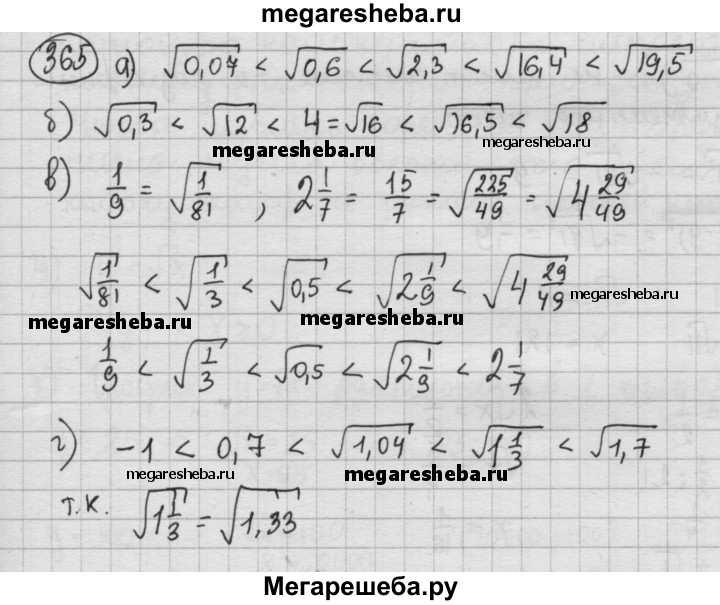 megaresheba.ru
365 а) √0,07 < √0,6 < √2,3 < √16,4 < √19,5
б) √0,3 < √12 < 4 = √16 < √16,5 < √18
megaresheba.ru megaresheba.ru
в) 1/9 = √(1/81) , 2 1/7 = 15/7 = √(225/49) = √(4 29/49)
√(1/81) < √(1/3) < √0,5 < √(2 1/9) < √(4 29/49)
megaresheba.ru megaresheba.ru megaresheba.ru
1/9 < √(1/3) < √0,5 < √(2 1/9) < 2 1/7
г) -1 < 0,7 < √1,04 < √(1 1/3) < √1,7
megaresheba.ru megaresheba.ru
т.к. √(1 1/3) = √1,33
Мегарешеба.ру